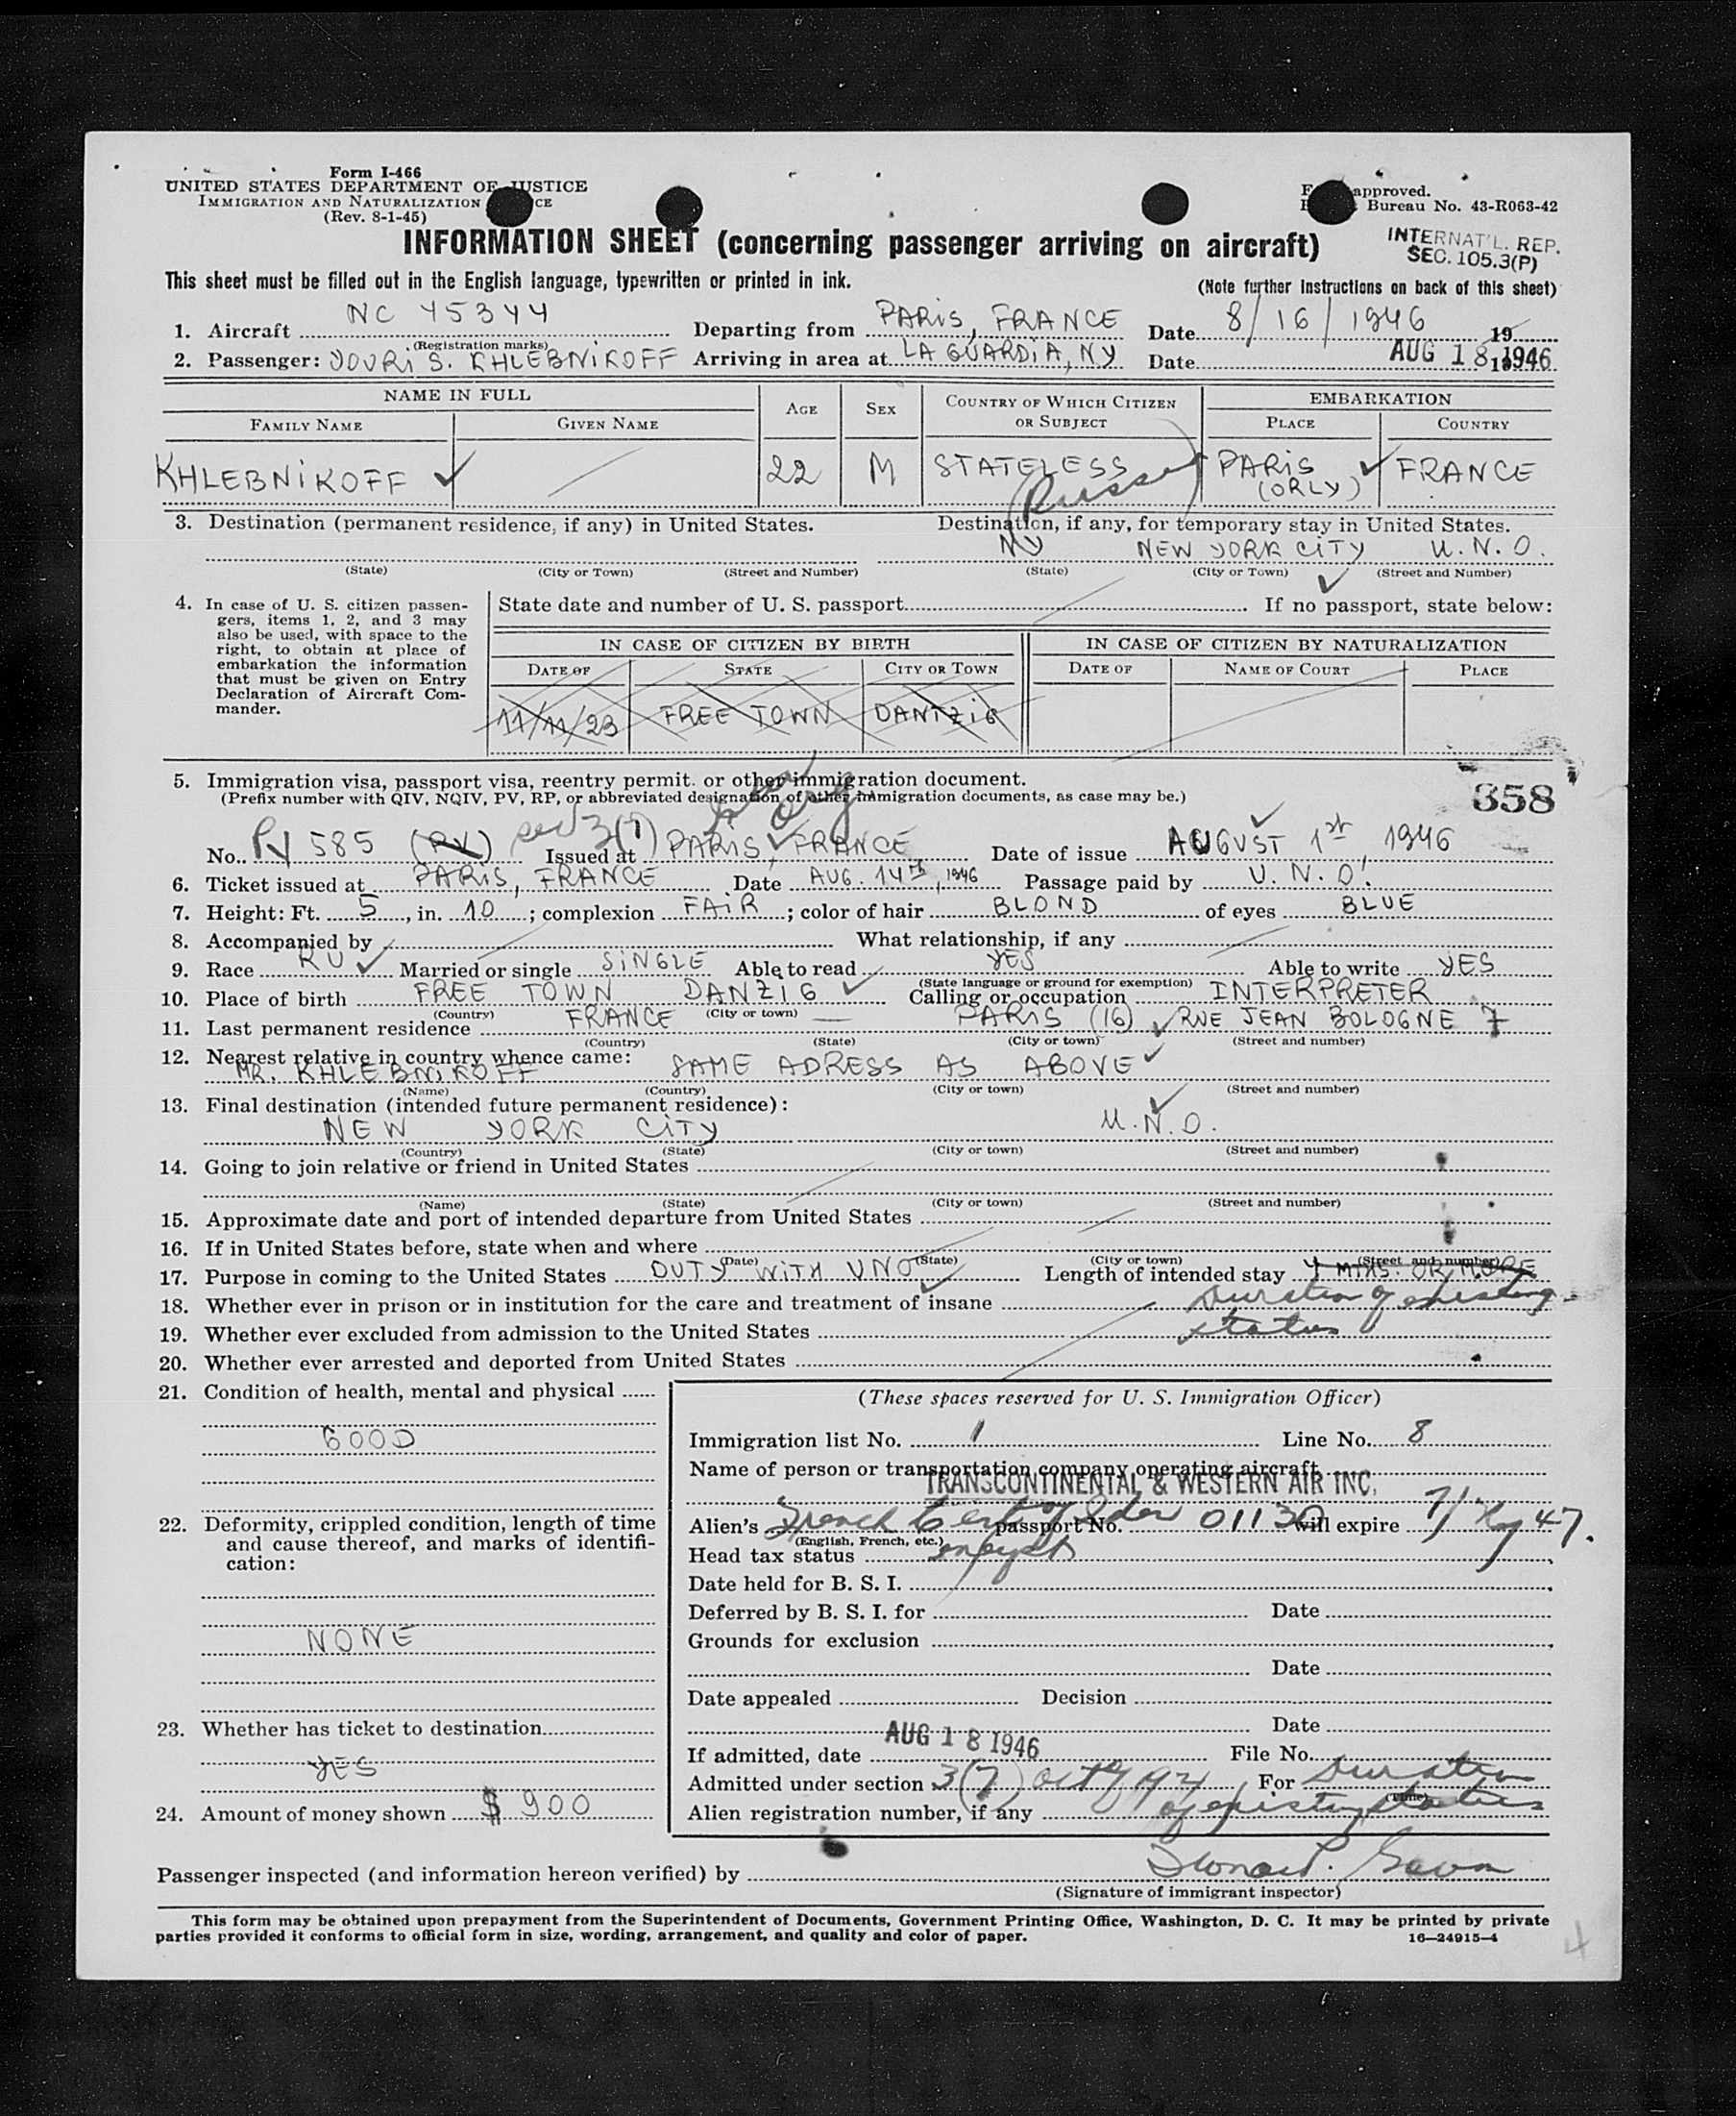 Form I-466
UNITED STATES DEPARTMENT OF JUSTICE
IMMIGRATION AND NATURALIZATION
(Rev. 8-1-45)
approved.
Bureau No. 43-R063-42
INFORMATION SHEET (concerning passenger arriving on aircraft)
INTERNAT'L. REP.
SEC. 105.3(P)
This sheet must be filled out in the English language, typewritten or printed in ink.
(Note further instructions on back of this sheet)
1. Aircraft NC 45344 Departing from PARIS, FRANCE Date 8/16/1946 19
(Registration marks)
2. Passenger: YOURI S. KHLEBNIKOFF Arriving in area at LA GUARDIA, NY Date AUG 18 1946
NAME IN FULL AGE SEX COUNTRY OF WHICH CITIZEN OR SUBJECT EMBARKATION
FAMILY NAME GIVEN NAME PLACE COUNTRY
KHLEBNIKOFF 22 M STATELESS PARIS (ORLY) FRANCE
3. Destination (permanent residence, if any) in United States. Destination, if any, for temporary stay in United States.
NY NEW YORK CITY U.N.O.
(State) (City or Town) (Street and Number) (State) (City or Town) (Street and Number)
4. In case of U. S. citizen passengers, items 1, 2, and 3 may also be used, with space to the right, to obtain at place of embarkation the information that must be given on Entry Declaration of Aircraft Commander.
State date and number of U. S. passport. If no passport, state below:
IN CASE OF CITIZEN BY BIRTH IN CASE OF CITIZEN BY NATURALIZATION
DATE OF STATE CITY OR TOWN DATE OF NAME OF COURT PLACE
11/11/23 FREE TOWN DANTZIG
358
5. Immigration visa, passport visa, reentry permit. or other immigration document.
(Prefix number with QIV, NQIV, PV, RP, or abbreviated designation of other immigration documents, as case may be.)
No. PV 585 (PV) sec 3(7) Issued at PARIS, FRANCE Date of issue AUGUST 1st, 1946
6. Ticket issued at PARIS, FRANCE Date AUG. 14th, 1946 Passage paid by U.N.O.
7. Height: Ft. 5, in. 10; complexion FAIR; color of hair BLOND of eyes BLUE
8. Accompanied by What relationship, if any
9. Race RU Married or single SINGLE Able to read YES Able to write YES
(State language or ground for exemption)
10. Place of birth FREE TOWN DANZIG Calling or occupation INTERPRETER
(Country) (City or town)
11. Last permanent residence FRANCE PARIS (16) RUE JEAN BOLOGNE 7
(Country) (State) (City or town) (Street and number)
12. Nearest relative in country whence came:
MR. KHLEBNIKOFF SAME ADRESS AS ABOVE
(Name) (Country) (City or town) (Street and number)
13. Final destination (intended future permanent residence):
NEW YORK CITY U.N.O.
(Country) (State) (City or town) (Street and number)
14. Going to join relative or friend in United States
(Name) (State) (City or town) (Street and number)
15. Approximate date and port of intended departure from United States
16. If in United States before, state when and where
(Date) (State) (City or town) (Street and number)
17. Purpose in coming to the United States DUTY WITH UNO Length of intended stay 4 MTHS. OR MORE
18. Whether ever in prison or in institution for the care and treatment of insane Duration of existing
19. Whether ever excluded from admission to the United States status
20. Whether ever arrested and deported from United States
21. Condition of health, mental and physical
GOOD
22. Deformity, crippled condition, length of time and cause thereof, and marks of identification:
NONE
23. Whether has ticket to destination
YES
24. Amount of money shown $ 900
(These spaces reserved for U. S. Immigration Officer)
Immigration list No. 1 Line No. 8
Name of person or transportation company operating aircraft
TRANSCONTINENTAL & WESTERN AIR INC.
Alien's French Cert of Iden passport No. 01130 will expire
(English, French, etc.)
Head tax status exempt
Date held for B. S. I.
Deferred by B. S. I. for Date
Grounds for exclusion
Date
Date appealed Decision
Date
If admitted, date AUG 18 1946 File No.
Admitted under section 3(7) For Duration
(Time)
Alien registration number, if any of existing status
Passenger inspected (and information hereon verified) by
(Signature of immigrant inspector)
This form may be obtained upon prepayment from the Superintendent of Documents, Government Printing Office, Washington, D. C. It may be printed by private
parties provided it conforms to official form in size, wording, arrangement, and quality and color of paper.
16—24915-4
4